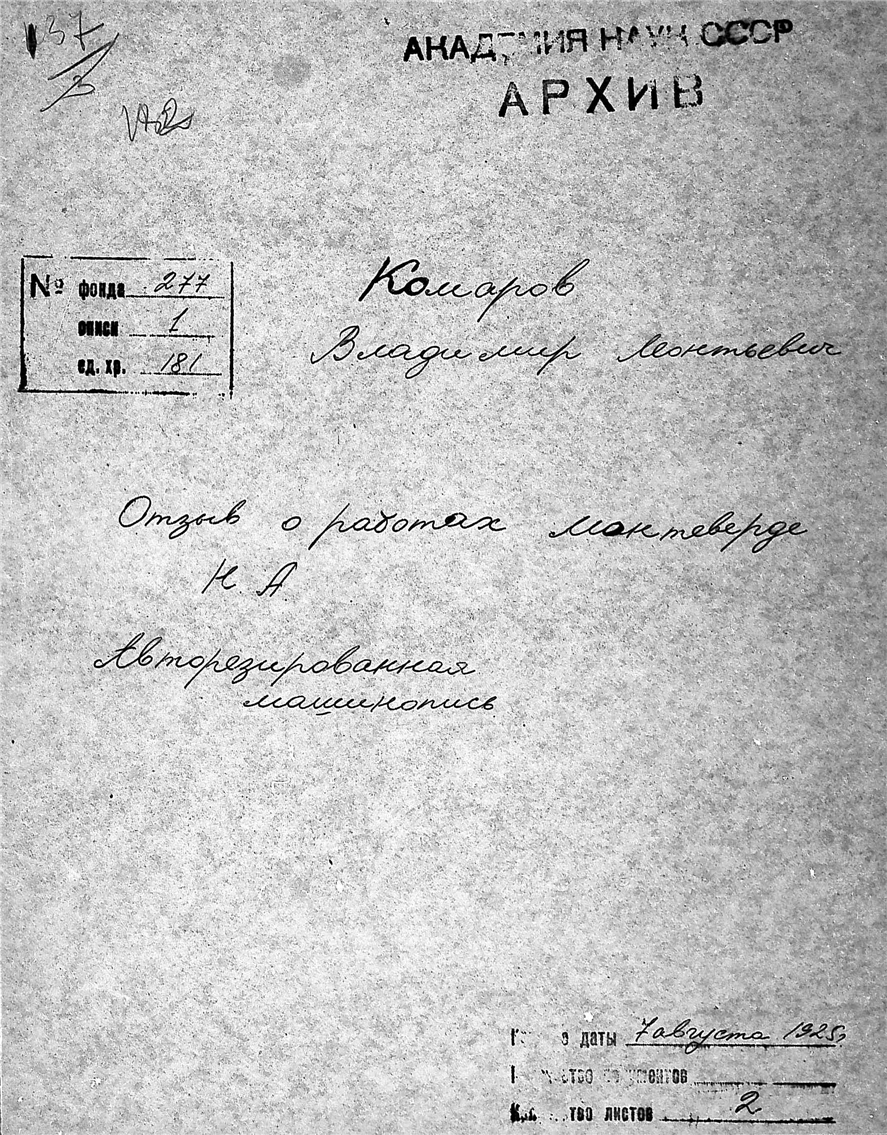 137
3
АКАДЕМИЯ НАУК СССР
АРХИВ
№ фонда 277
описи 1
ед. хр. 181
Комаров
Владимир Леонтьевич
Отзыв о работах Монтеверде
Н. А
Авторезированная
машинопись
даты 7 августа 1925г
листов 2